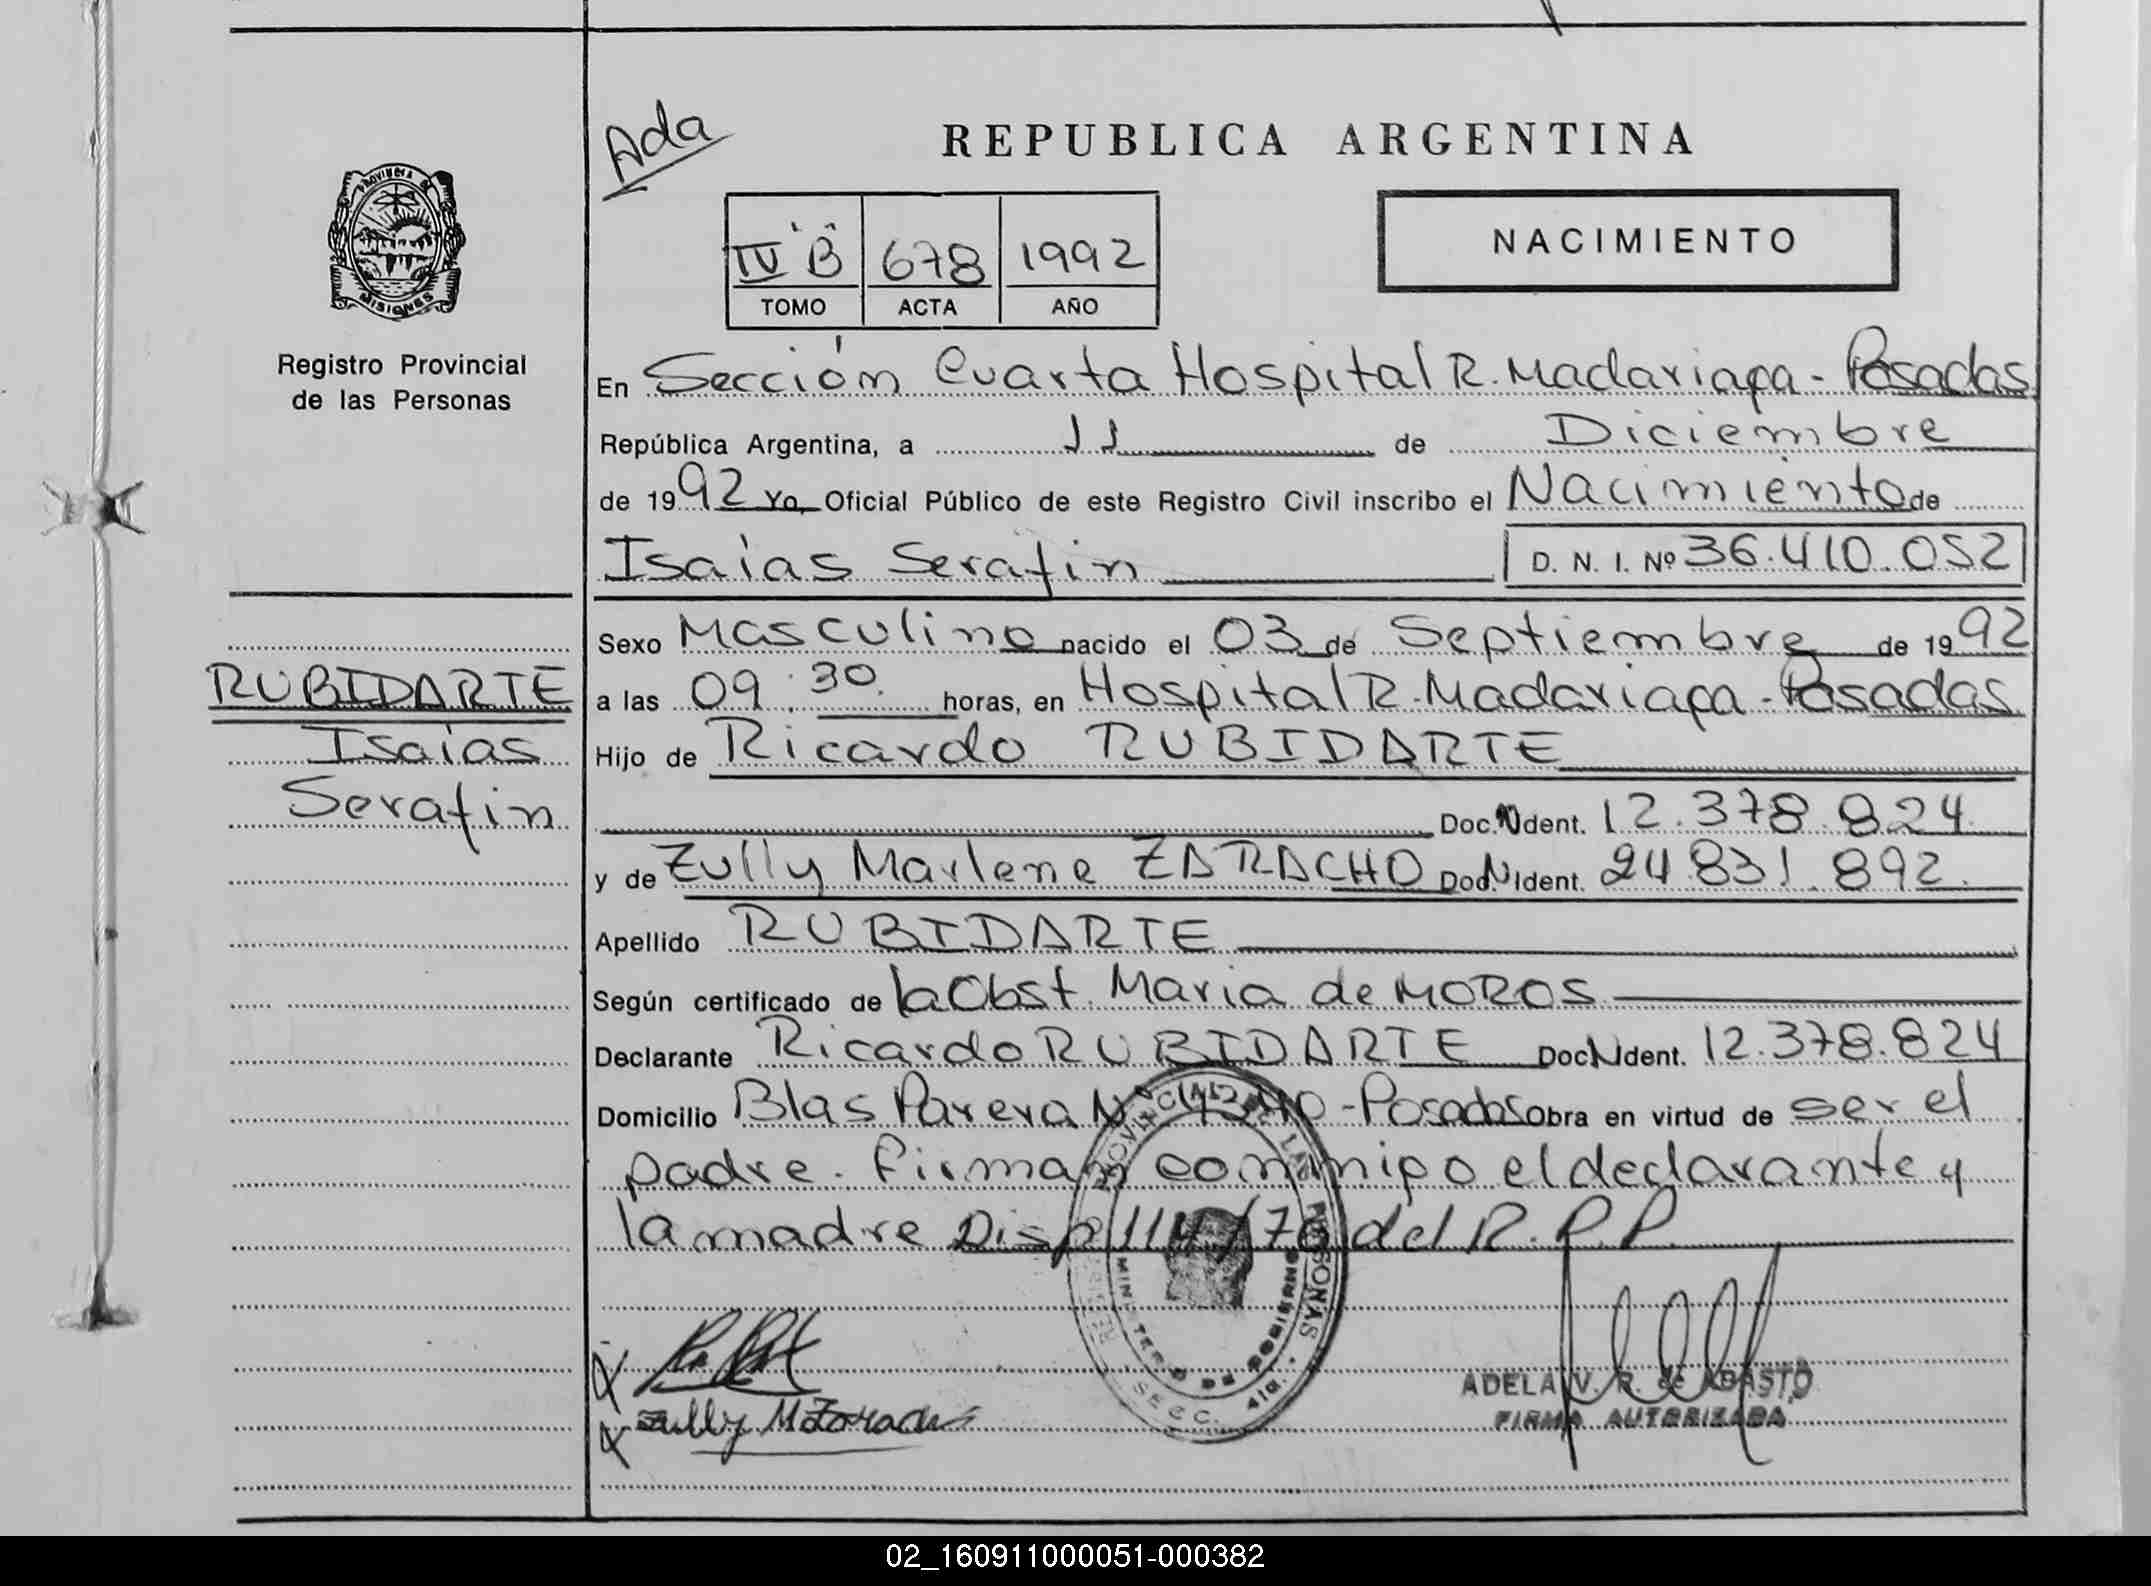 Ada
REPUBLICA ARGENTINA
PROVINCIA DE
MISIONES
Registro Provincial
de las Personas
IV "B" 678 1992
TOMO ACTA AÑO
NACIMIENTO
En Sección Cuarta Hospital R. Madariaga - Posadas
República Argentina, a 11 de Diciembre
de 1992 Yo, Oficial Público de este Registro Civil inscribo el Nacimiento de
Isaías Serafin D. N. I. Nº 36.410.052
Sexo Masculino nacido el 03 de Septiembre de 1992
RUBIDARTE
Isaías
Serafin
a las 09:30 horas, en Hospital R. Madariaga - Posadas
Hijo de Ricardo RUBIDARTE
Doc. N Ident. 12.378.824
y de Zully Marlene ZARACHO Doc N Ident. 24.831.892
Apellido RUBIDARTE
Según certificado de la Obst. Maria de MOROS
Declarante Ricardo RUBIDARTE Doc N Ident. 12.378.824
Domicilio Blas Parera Nº - Posadas Obra en virtud de ser el
padre. Firman conmigo el declarante y
la madre Disp 114/70 del R.P.P.
PROVINCIAL DE LAS PERSONAS
MINISTERIO DE GOBIERNO
SECC. 4ta.
Zully M Zaracho
ADELA V. R. de ABASTO
FIRMA AUTORIZADA
02_160911000051-000382